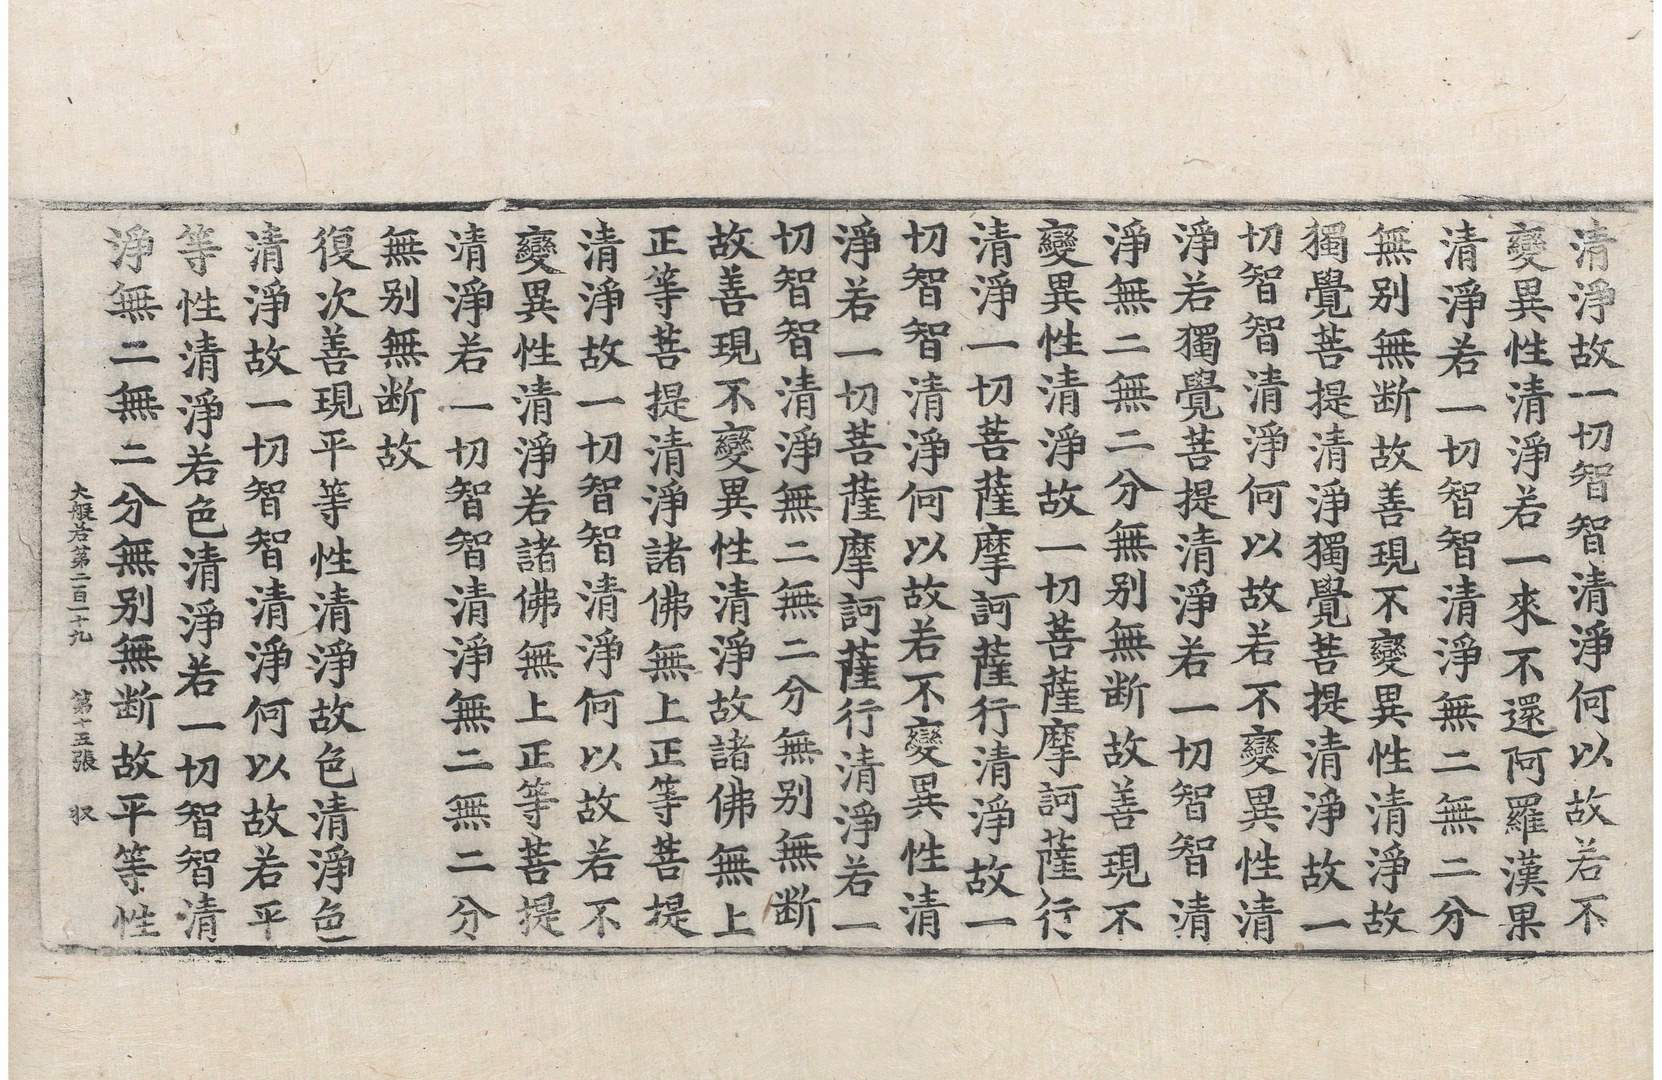 清淨故一切智智清淨何以故若不
變異性清淨若一來不還阿羅漢果
清淨若一切智智清淨無二無二分
無別無断故善現不變異性清淨故
獨覺菩提清淨獨覺菩提清淨故一
切智智清淨何以故若不變異性清
淨若獨覺菩提清淨若一切智智清
淨無二無二分無別無断故善現不
變異性清淨故一切菩薩摩訶薩行
清淨一切菩薩摩訶薩行清淨故一
切智智清淨何以故若不變異性清
淨若一切菩薩摩訶薩行清淨若一
切智智清淨無二無二分無別無断
故善現不變異性清淨故諸佛無上
正等菩提清淨諸佛無上正等菩提
清淨故一切智智清淨何以故若不
變異性清淨若諸佛無上正等菩提
清淨若一切智智清淨無二無二分
無別無断故
復次善現平等性清淨故色清淨色
清淨故一切智智清淨何以故若平
等性清淨若色清淨若一切智智清
淨無二無二分無別無断故平等性
大般若第二百一十九 第十五張 収